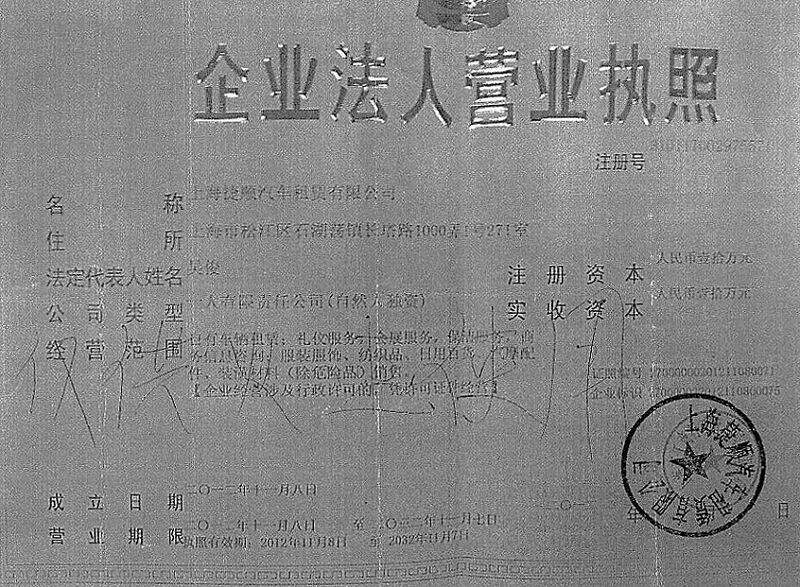 企业法人营业执照
注册号
名称 上海捷顺汽车租赁有限公司
住所 上海市松江区石湖荡镇长塔路1000弄1号271室
法定代表人姓名 吴俊
注册资本 人民币壹拾万元
公司类型 一人有限责任公司(自然人独资)
实收资本 人民币壹拾万元
经营范围 自有车辆租赁;礼仪服务,会展服务,保洁服务,商
务信息咨询;服装服饰、纺织品、日用百货、汽摩配
件、装潢材料(除危险品)销售。
【企业经营涉及行政许可的,凭许可证件经营】
证照编号
企业标识
成立日期 二〇一二年十一月八日
营业期限 二〇一二年十一月八日 至 二〇三二年十一月七日
执照有效期: 2012年11月8日 至 2032年11月7日
年 日